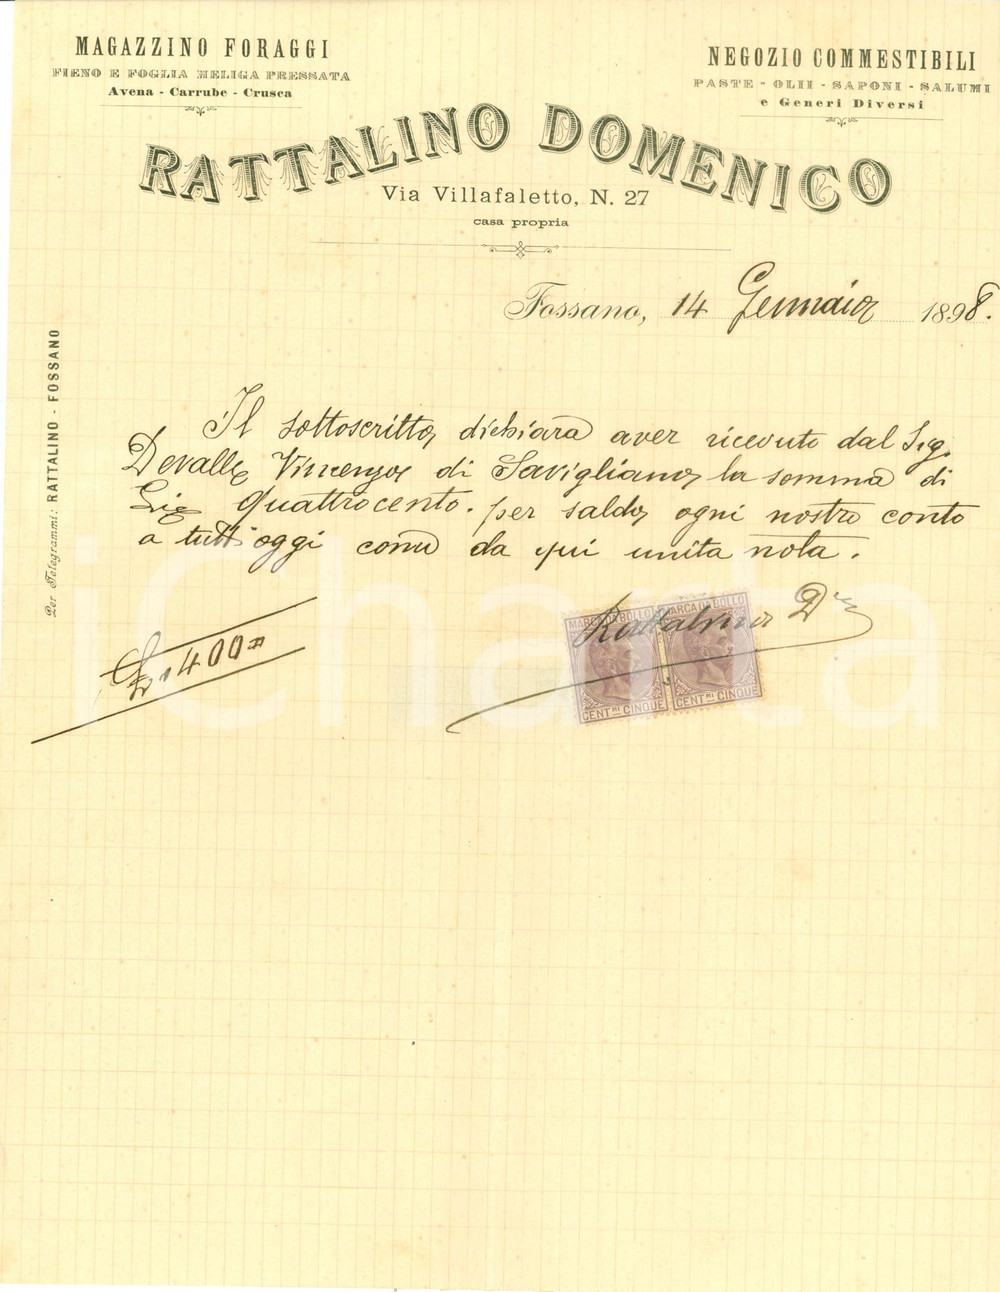 MAGAZZINO FORAGGI
FIENO E FOGLIA MELIGA PRESSATA
Avena - Carrube - Crusca
NEGOZIO COMMESTIBILI
PASTE - OLII - SAPONI - SALUMI
e Generi Diversi
RATTALINO DOMENICO
Via Villafaletto, N. 27
casa propria
Fossano, 14 Gennaio 1898.
Per Telegrammi: RATTALINO - FOSSANO
Il sottoscritto dichiara aver ricevuto dal Sig.
Devalle Vincenzo di Savigliano la somma di
Lire Quattrocento. per saldo ogni nostro conto
a tutt'oggi come da qui unita nota.
£ 400
Rattalino D.co
MARCA DA BOLLO MARCA DA BOLLO
CENT.MI CINQUE CENT.MI CINQUE
iCharta